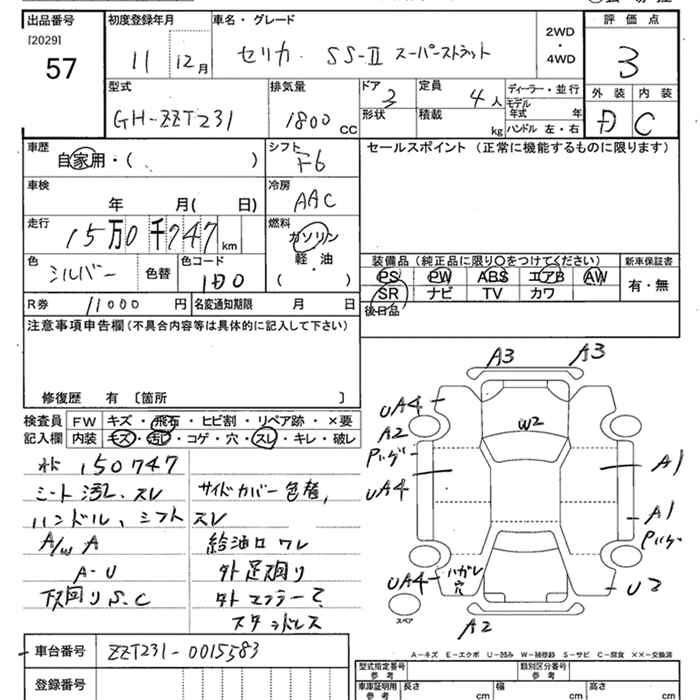 出品番号 初度登録年月 車名・グレード 評価点
[2029]
57 11 12月 セリカ SS-Ⅱ スーパーストラット 2WD・4WD 3
型式 排気量 ドア 定員 ディーラー・並行 外装 内装
GH-ZZT231 1800CC 3 4人 モデル年式 年 D C
形状 積載 kg ハンドル 左・右
車歴 シフト セールスポイント (正常に機能するものに限ります)
自家用・( ) F6
車検 冷房
年 月( 日) AAC
走行 燃料
15万0千747km ガソリン
軽・油
( )
色 色コード 装備品 (純正品に限り○をつけてください) 新車保証書
シルバー 色替 1D0 PS PW ABS エアB AW 有・無
SR ナビ TV カワ
R券 11000円 名変通知期限 月 日 後日品
注意事項申告欄 (不具合内容等は具体的に記入して下さい)
修復歴 有 〔箇所 〕
検査員 FW キズ・飛石・ヒビ割・リペア跡・×要
記入欄 内装 キズ・汚レ・コゲ・穴・スレ・キレ・破レ
オド 150747
シート汚レ、スレ サイドカバー色替、
ハンドル、シフトスレ
A/W A 給油口ワレ
A-U 外足廻り
下廻りS.C 外マフラー
スタッドレス
A3 A3
UA4
A2 W2
Pハゲ A1
UA4
A1
Pハゲ
UA4 ハガレ 穴 U2
スペア
A2
A-キズ E-エクボ U-凹み W-補修跡 S-サビ C-腐食 ××-交換済
車台番号 ZZT231-0015583
型式指定番号 参考 類別区分番号 参考
登録番号 車庫証明用 参考 長さ cm 幅 cm 高さ cm